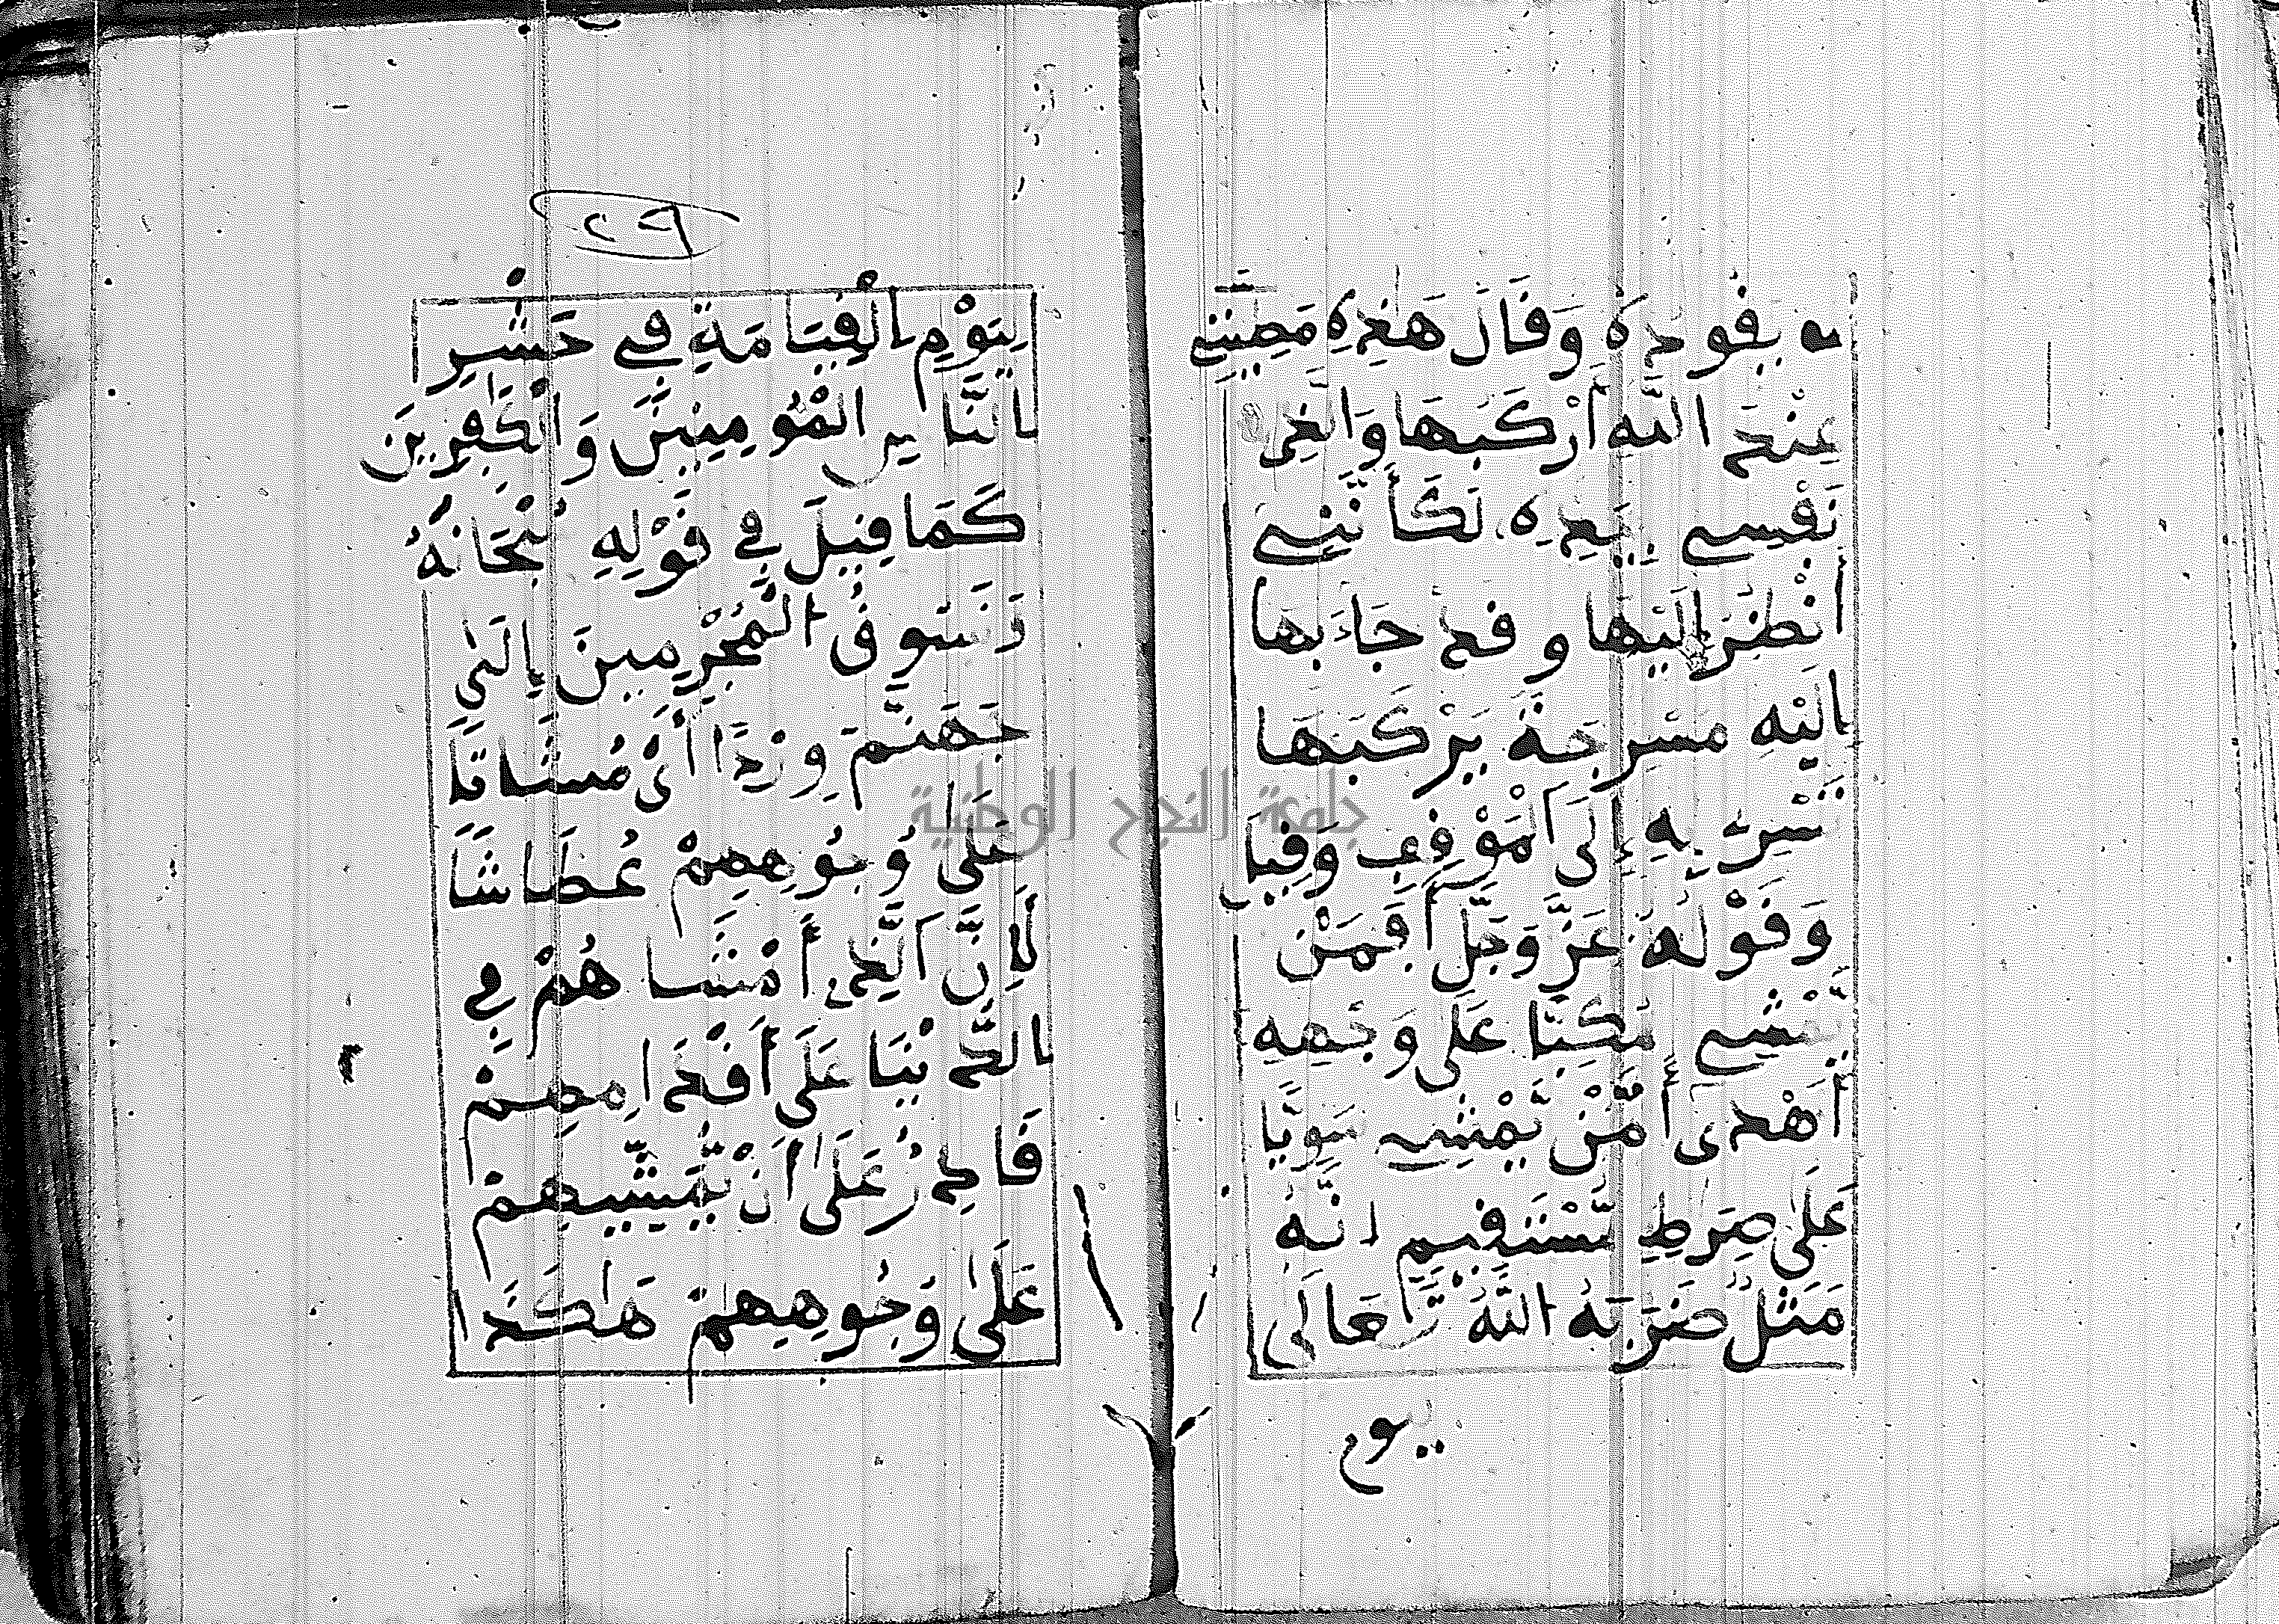 يقوده وَقَالَ هَذِهِ مَطِيتِي
عِنْدَ اللَّهِ أَرْكَبُهَا وَالَّذِي
نَفْسِي بِيَدِهِ لَكَأَنَّنِي
أَنْظُرُ إِلَيْهَا وقد جَاءَ بِهَا
إِلَيْهِ مُسْرَجَةً يَرْكَبُهَا
تَسِيرُ بِهِ إِلَى الْمَوْقِفِ وَقِيلَ
وَقَوْلُهُ عَزَّ وَجَلَّ أَفَمَنْ
يَّمْشِي مُكِبًّا عَلَى وَجْهِهِ
أَهْدَى أَمَّنْ يَّمْشِي سَوِيًّا
عَلَى صِرَطٍ مُّسْتَقِيمٍ انَّهُ
مَثَلٌ ضَرَبَهُ اللَّهُ تَعَالَى
يوم
٢٩
لِيَوْمِ الْقِيَامَةِ فِي حَشْرِ
النَّاسِ الْمُومِنِينَ وَالْكَفِرِينَ
كَمَا قِيلَ فِي قَوْلِهِ سُبْحَانَهُ
نَسُوقُ الْمُجْرِمِينَ إِلَى
جَهَنَّمَ وِرْدًا أَيْ مُشَاةً
عَلَى وُجُوهِهِمْ عُطَاشًا
لِأَنَّ الَّذِي أَمْشَاهُمْ فِي
الدُّنْيَا عَلَى أَقْدَامِهِمْ
قَادِرٌ عَلَى أَنْ يُّمَشِّيَهُمْ
عَلَى وُجُوهِهِمْ هَكَذَا
جامعة النجاح الوطنية